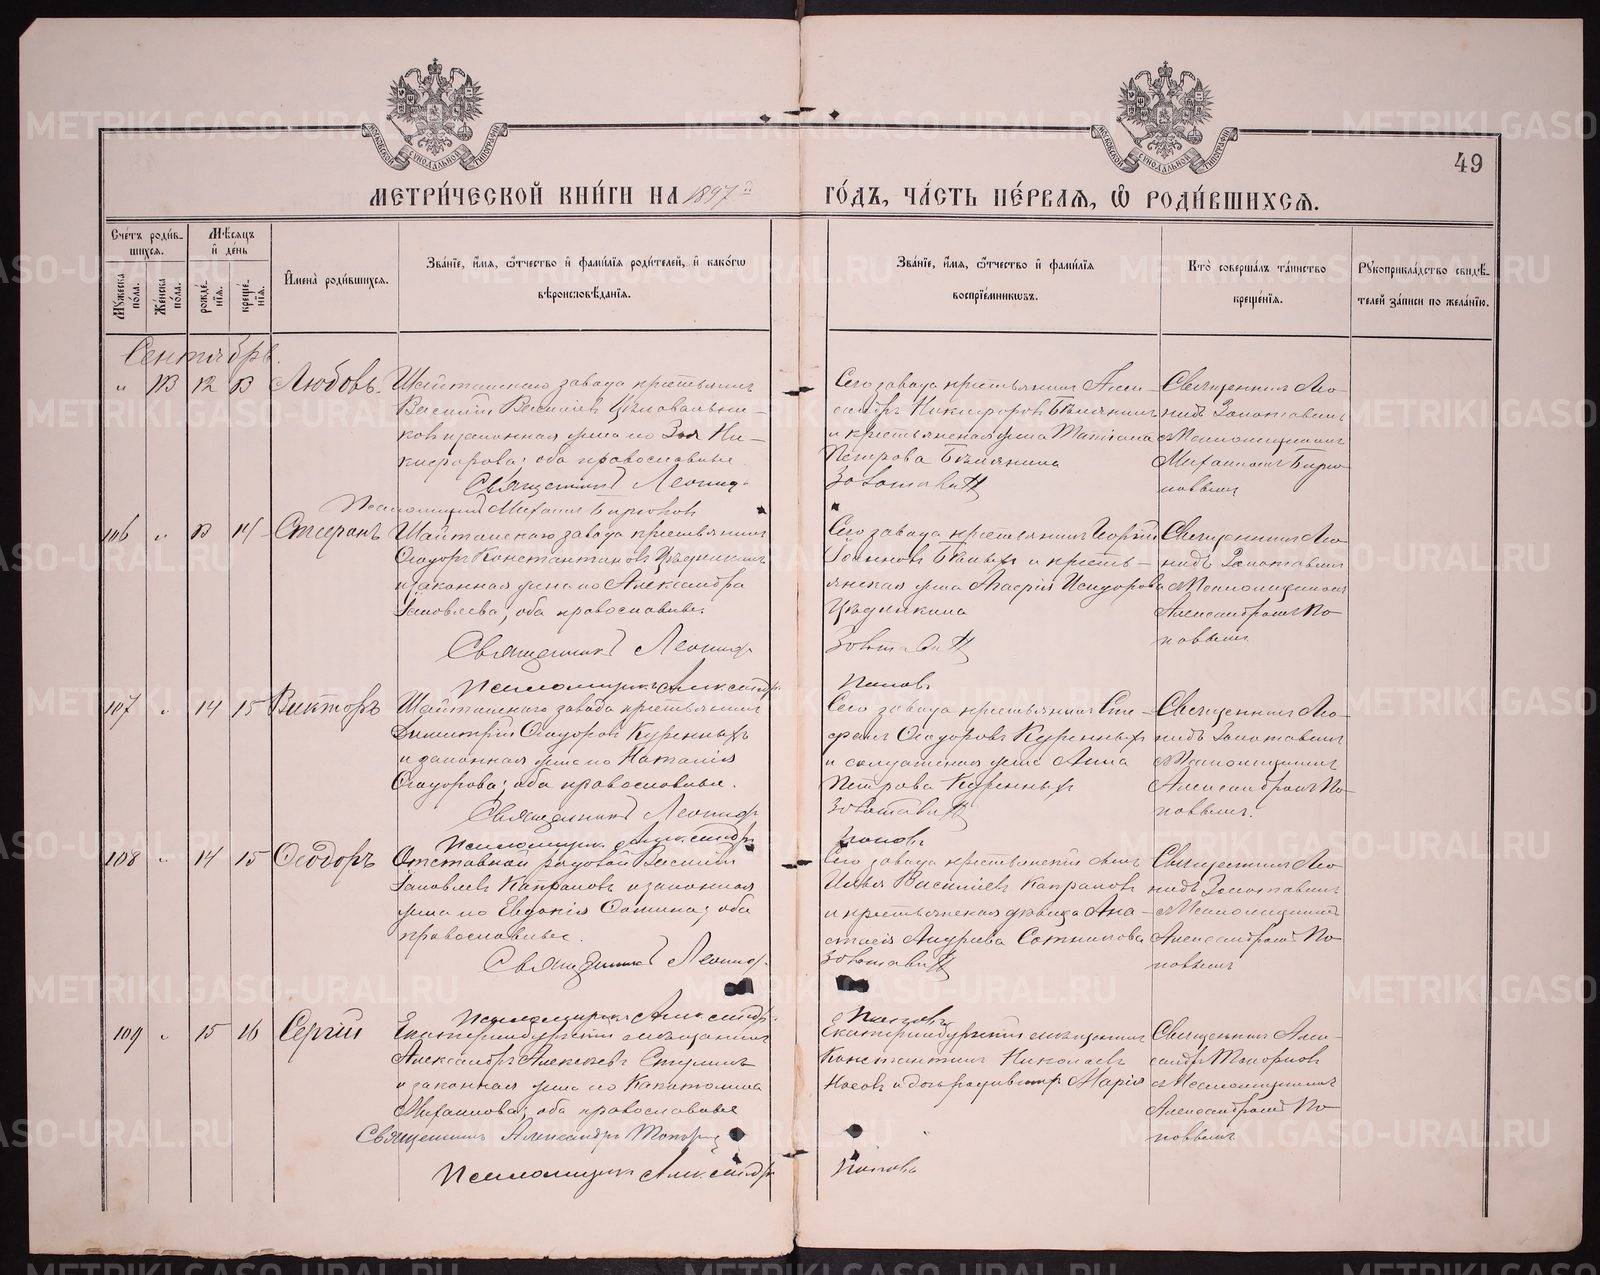 49
МЕТРИ́ЧЕСКОЙ КНИ́ГИ НА 1897й ГО́ДЪ, ЧА́СТЬ ПЕ́РВАЯ, Ѡ РОДИ́ВШИХСѦ.
Сче́тъ роди́вшихсѧ.
Мꙋ́жеска по́ла.
Же́нска по́ла.
Мѣ́сѧцъ и де́нь
рожде́нїѧ.
креще́нїѧ.
Имена̀ роди́вшихсѧ.
Зва́нїе, и́мѧ, ѻ҆́тчество и фами́лїѧ роди́телей, и како́гѡ вѣроисповѣ́данїѧ.
Зва́нїе, и́мѧ, ѻ҆́тчество и фами́лїѧ воспрїе́мникѡвъ.
Кто̀ соверша́лъ та́инство креще́нїѧ.
Рꙋкоприкла́дство свидѣ́телей за́писи по жела́нїю.
Сентябрь.
" 113 12 13 Любовь.
Шайтанскаго завода крестьянинъ
Василій Васильевъ Цѣловальни-
ковъ и законная жена его Зоя Ни-
кифорова; оба православные.
Священникъ Леонидъ
Псаломщикъ Михаилъ Бирюковъ
Сего завода крестьянинъ Алек-
сандръ Никифоровъ
и крестьянская жена Татіана
Петрова
Золотавинъ
Священникъ Лео-
нидъ Золотавинъ
съ Псаломщикомъ
Михаиломъ Бирю-
ковымъ
106 " 13 14 Стефанъ
Шайтанскаго завода крестьянинъ
Ѳеодоръ Константиновъ
и законная жена его Александра
Яковлева; оба православные
Священникъ Леонидъ
Псаломщикъ Александръ
Сего завода крестьянинъ Георгій
и кресть-
янская жена Исидорова
Золотавинъ
Поповъ
Священникъ Лео-
нидъ Золотавинъ
съ Псаломщикомъ
Александромъ По-
повымъ
107 " 14 15 Викторъ
Шайтанскаго завода крестьянинъ
Димитрій Ѳеодоровъ Куренныхъ
и законная жена его Наталія
Ѳеодорова; оба православные.
Священникъ Леонидъ
Псаломщикъ Александръ
Сего завода крестьянинъ Сте-
фанъ Ѳеодоровъ Куренныхъ
и солдатская жена Анна
Петрова Куренныхъ
Золотавинъ
Поповъ
Священникъ Лео-
нидъ Золотавинъ
съ Псаломщикомъ
Александромъ По-
повымъ.
108 " 14 15 Ѳеодоръ
Отставной рядовой Василій
Яковлевъ Капраловъ и законная
жена его Евдокія Фомина; оба
православные.
Священникъ Леонидъ
Псаломщикъ Александръ
Сего завода крестьянскій сынъ
Илья Васильевъ Капраловъ
и крестьянская дѣвица Ана-
стасія Андреева Сотникова
Золотавинъ
Поповъ
Священникъ Лео-
нидъ Золотавинъ
съ Псаломщикомъ
Александромъ По-
повымъ
109 " 15 16 Сергій
Екатеринбургскій мѣщанинъ
Александръ Алексѣевъ
и законная жена его Капитолина
Михаилова; оба православные
Священникъ Александръ Топорковъ
Псаломщикъ Александръ
Екатеринбургскій мѣщанинъ
Константинъ Николаевъ
Носовъ и Марія
Поповъ
Священникъ Алек-
сандръ Топорковъ
съ Псаломщикомъ
Александромъ По-
повымъ
METRIKI.GASO-URAL.RU